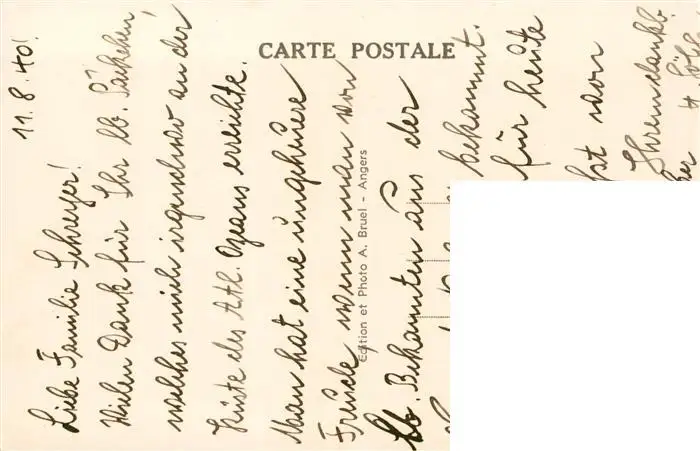 CARTE POSTALE
Edition et Photo A. Bruel - Angers
11.8.40!
Liebe Familie Schreyer!
Vielen Dank für Ihr lb. Päckchen,
welches mich irgendwo an der
Küste des Atl. Ozeans erreichte.
Man hat eine ungeheuere
Freude wenn man von
lb. Bekannten aus der
bekannt.
für heute
von
Ihrem dankb.